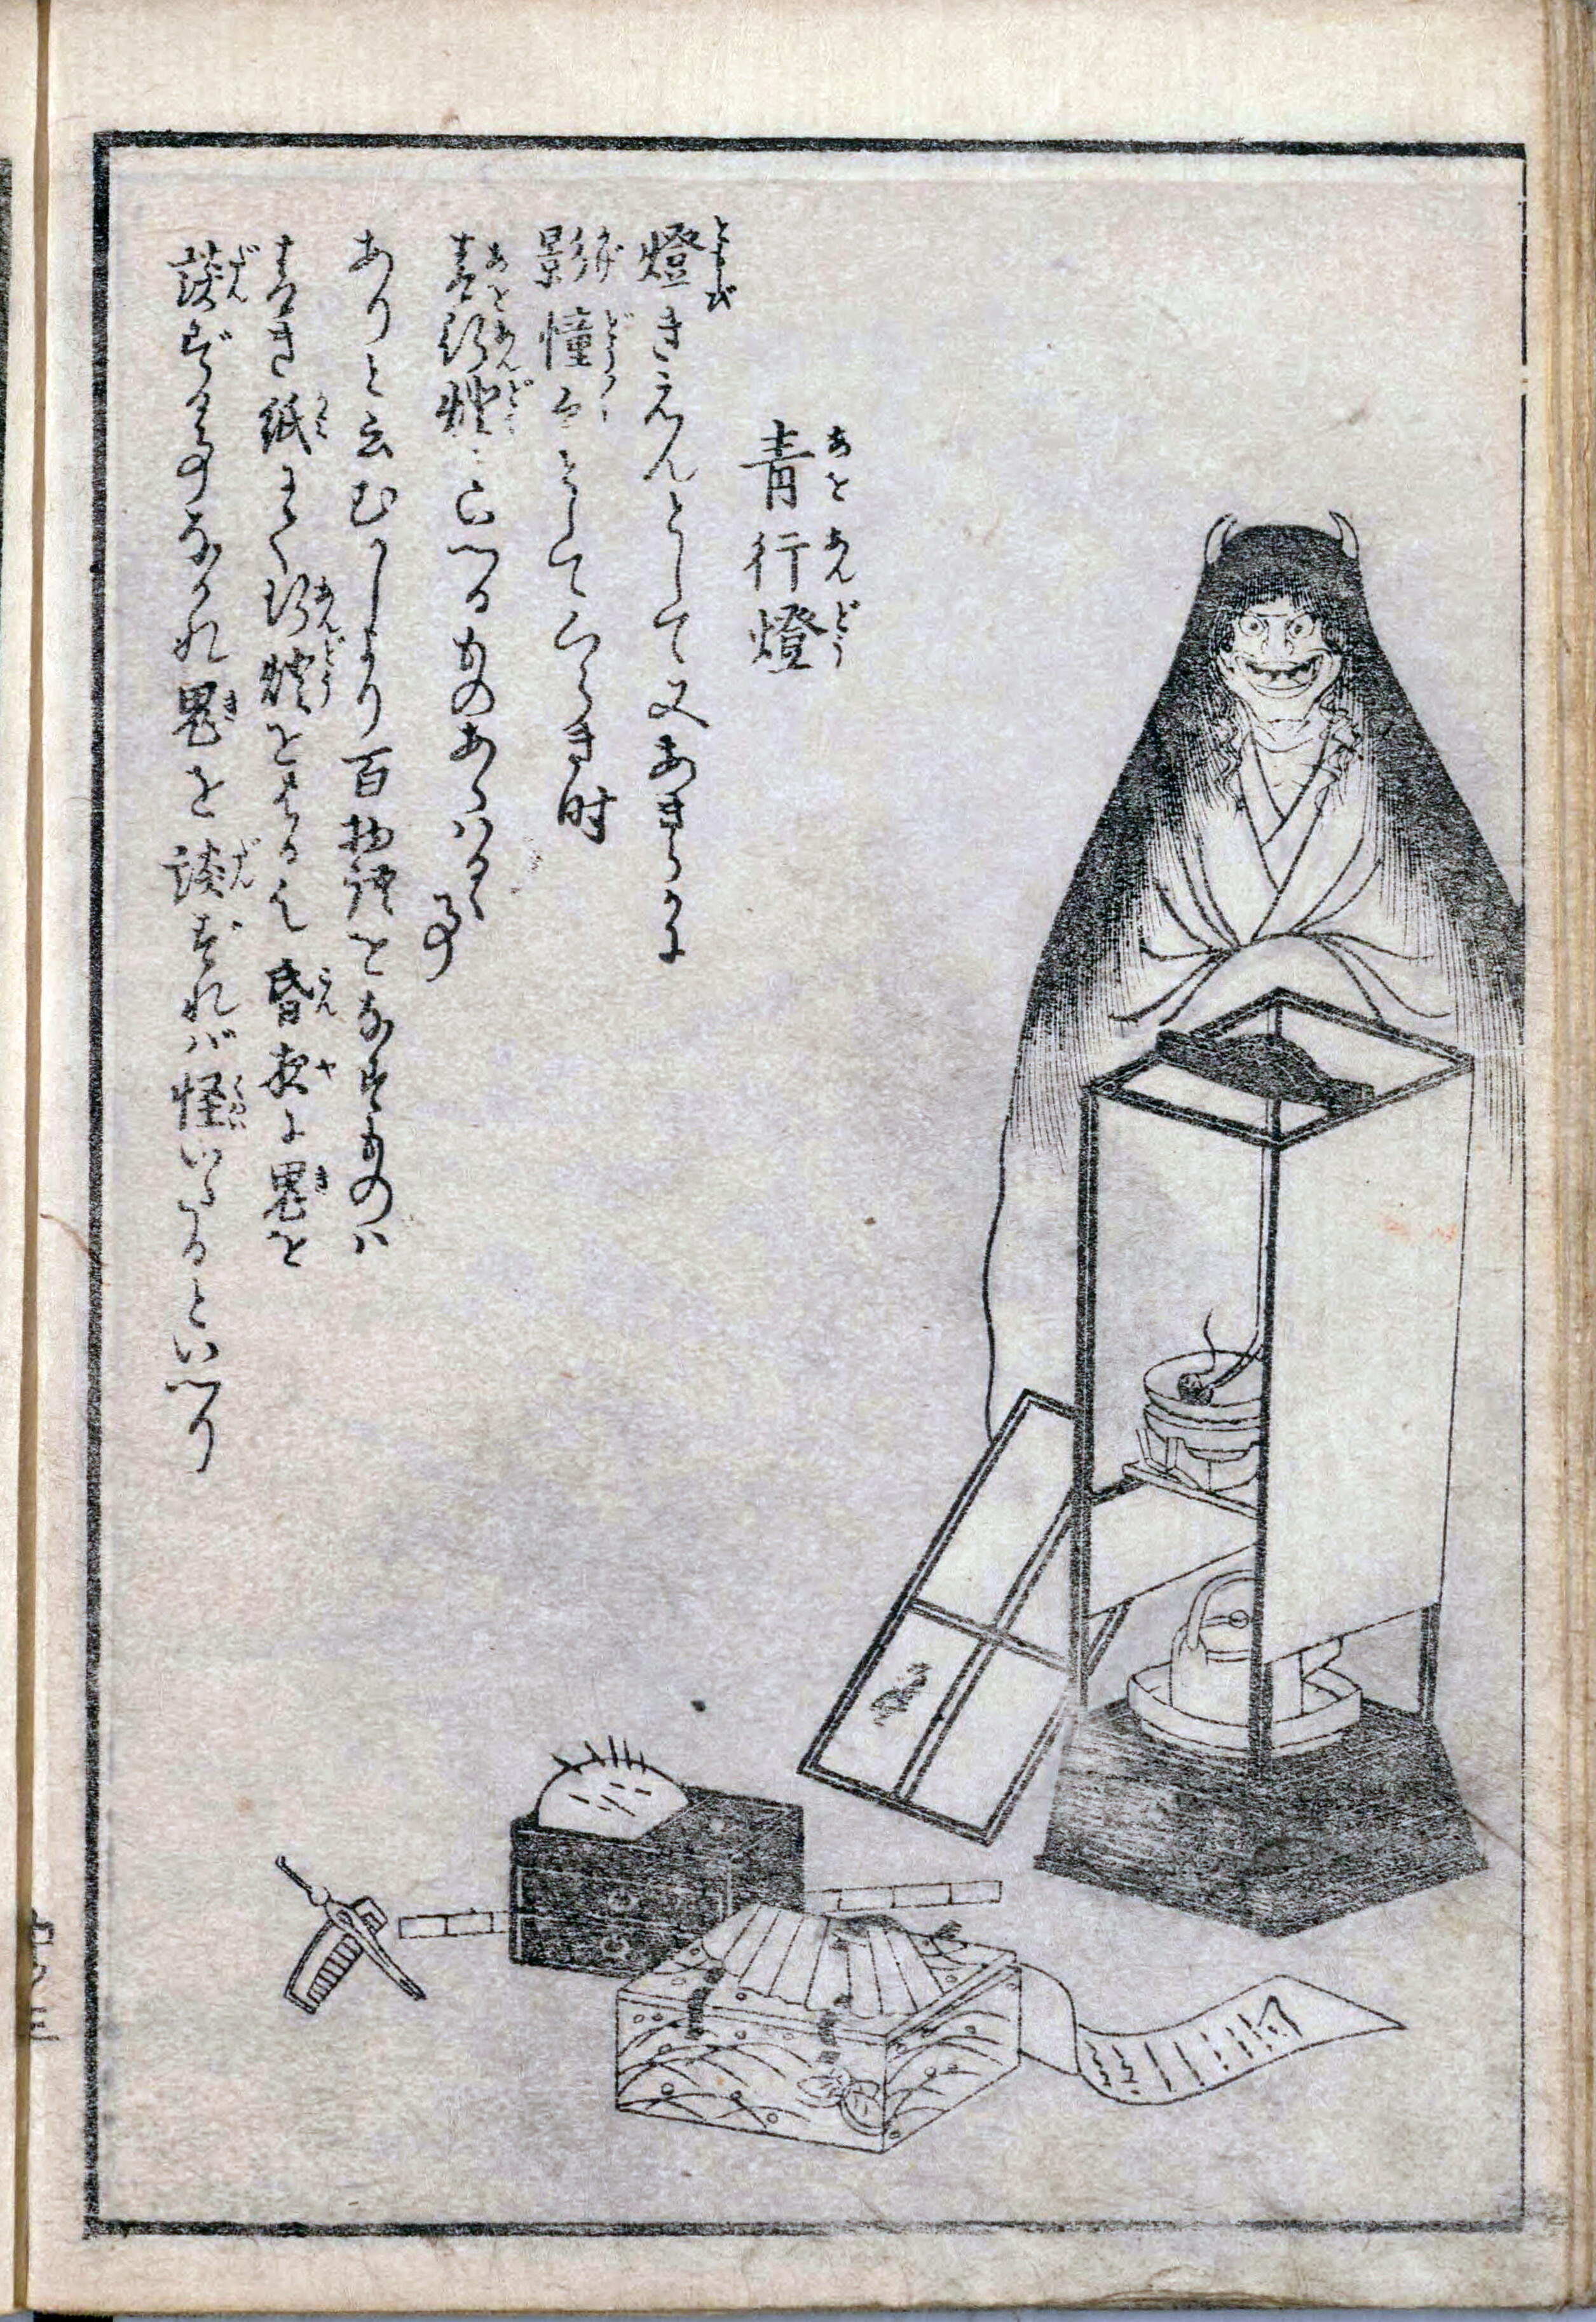 青行燈
あをあんどう
燈きえんとして又あきらかに
影憧々としてくらき時
青行燈といへるものあらはるゝ事
ありと云むかしより百物語をなすものハ
青き紙にて行燈をはる也昏夜に鬼を
談ずる事なかれ鬼を談ずれバ怪いたるといへり